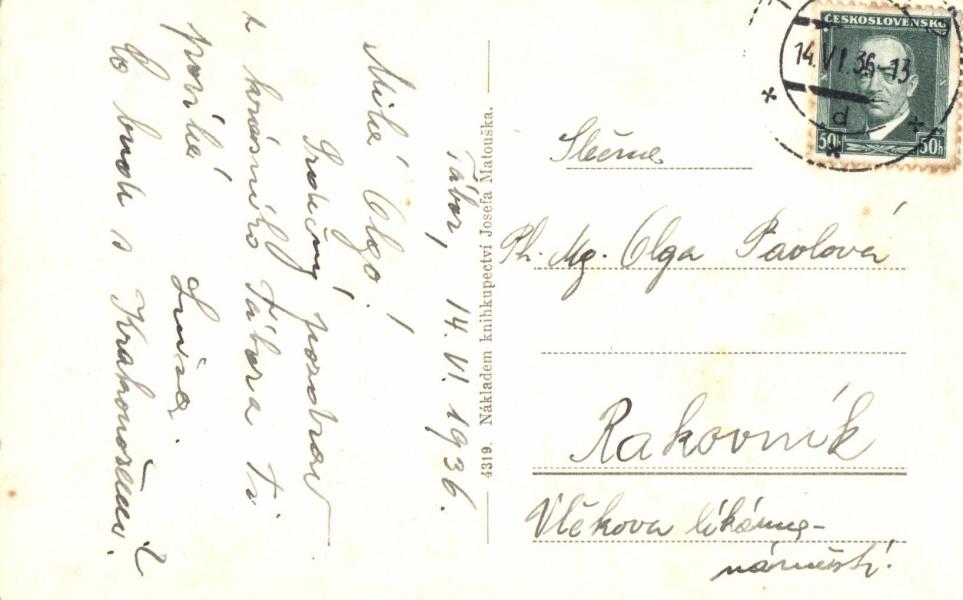 Tábor, 14. VI. 1936.
Milá Olgo!
Srdečný pozdrav
z krásného Tábora Ti
posílá
Luisa.
Co bude s Krakonošem?
4319. Nákladem knihkupectví Josefa Matouška.
ČESKOSLOVENSKO
14.VI.36-13
d
50h 50h
Slečna
Ph. Mg. Olga Pavlová
Rakovník
Vlčkova lékárna-
náměstí.